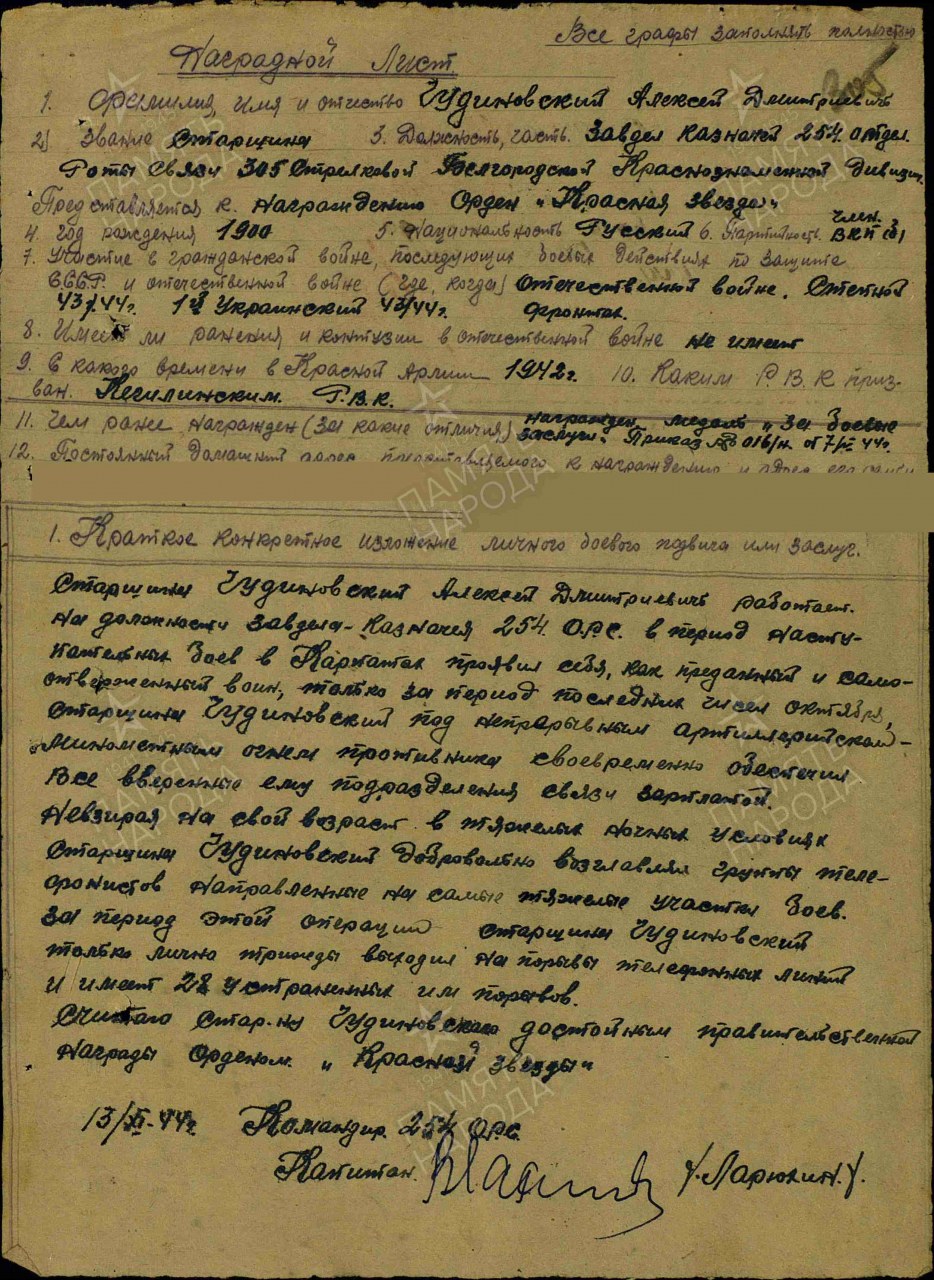 Все графы заполнять полностью
Наградной Лист
1. Фамилия, имя и отчество Чудиновский Алексей Дмитриевич
2) Звание Старшина 3. Должность, часть. Завдел казначей 254 отдел.
Роты Связи 305 Стрелковой Белгородской Краснознаменной дивизии
Представляется к награждению Орден „Красная звезда"
4. год рождения 1900 5. Национальность Русский 6. Партийность член ВКП(б)
7. Участие в гражданской войне, последующих боевых действиях по защите
С.С.С.Р. и отечественной войне (где, когда) отечественной войне. Степной
43/44г. 1й Украинский 43/44г. фронтах.
8. Имеет ли ранения и контузии в отечественной войне не имеет
9. С какого времени в Красной Армии 1942г. 10. Каким Р.В.К приз-
ван. Р.В.К.
11. Чем ранее награжден (за какие отличия) награжден медаль „За боевые
заслуги". Приказ № 016/н. от 44г.
12. Постоянный домашний адрес представляемого к награждению и адрес его семьи
1. Краткое конкретное изложение личного боевого подвига или заслуг.
Старшина Чудиновский Алексей Дмитриевич работает
на должности завдела-казначея 254 О.Р.С. в период насту-
пательных боев в Карпатах проявил себя, как преданный и само-
отверженный воин, только за период последних чисел октября,
старшина Чудиновский под непрарывным артиллерийской-
минометным огнем противника своевременно обеспечил
все вверенные ему подразделения связи зарплатой.
Невзирая на свой возраст в тяжелых ночных условиях
старшина Чудиновский добровольно возглавлял группы теле-
фонистов направленные на самые тяжелые участки боев.
За период этой операции старшина Чудиновский
только лично трижды выходил на порывы телефонных линий
и имеет 28 устраненных им порывов.
Считаю стар-ну Чудиновского достойным правительственной
награды орденом „Красной звезды"
13/XI-44г Командир 254 О.Р.С.
Капитан /Ларюхин/
ПАМЯТЬ
НАРОДА